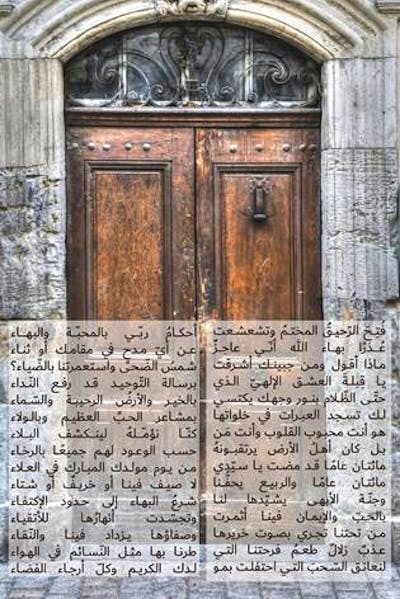 فُتِحَ الرّحيقُ المختمُ وتشعشعت أحكامُ ربّي بالمحبّة والبهاء
عُذْرًا بهاء الله أنّي عاجزٌ عن أيّ مدحٍ في مقامك أو ثناء
ماذا أقول ومن جبينك أشرقت شمس الضّحى واستعمرتنا بالضّياء؟
يا قبلة العشق الإلهيّ الذي برسالة التّوحيد قد رفع النّداء
حتّى الظّلام بنور وجهك يكتسي بالخير والأرض الرحيبة والسّماء
لك تسجد العبرات في خلواتها بمشاعر الحبّ العظيم وبالولاء
هو أنت محبوب القلوب وأنت مَن كنّا نؤمّله لينكشف البلاء
بل كان أهلُ الأرض يرتقبونهُ حسب الوعود لهم جميعًا بالرخاء
مائتان عامًا قد مضت يا سيّدي من يوم مولدك المبارك في العلاء
مائتان عامًا والربيع يحفّنا لا صيف فينا أو خريفٌ أو شتاء
وجنّة الأبهى يشيّدها لنا شرعُ البهاء إلى حدود الإكتفاء
بالحبّ والإيمان فينا أثمرت وتجسّدت أنهارُها للأتقياء
من تحتنا تجري بصوت خريرها وصفاؤها يزداد فينا والنّقاء
عذبٌ زلالٌ طعم فرحتنا التي طرنا بها مثل النّسائم في الهواء
لنعانق السّحبَ التي احتفلت بمو لدك الكريم وكلّ أرجاء الفضاء